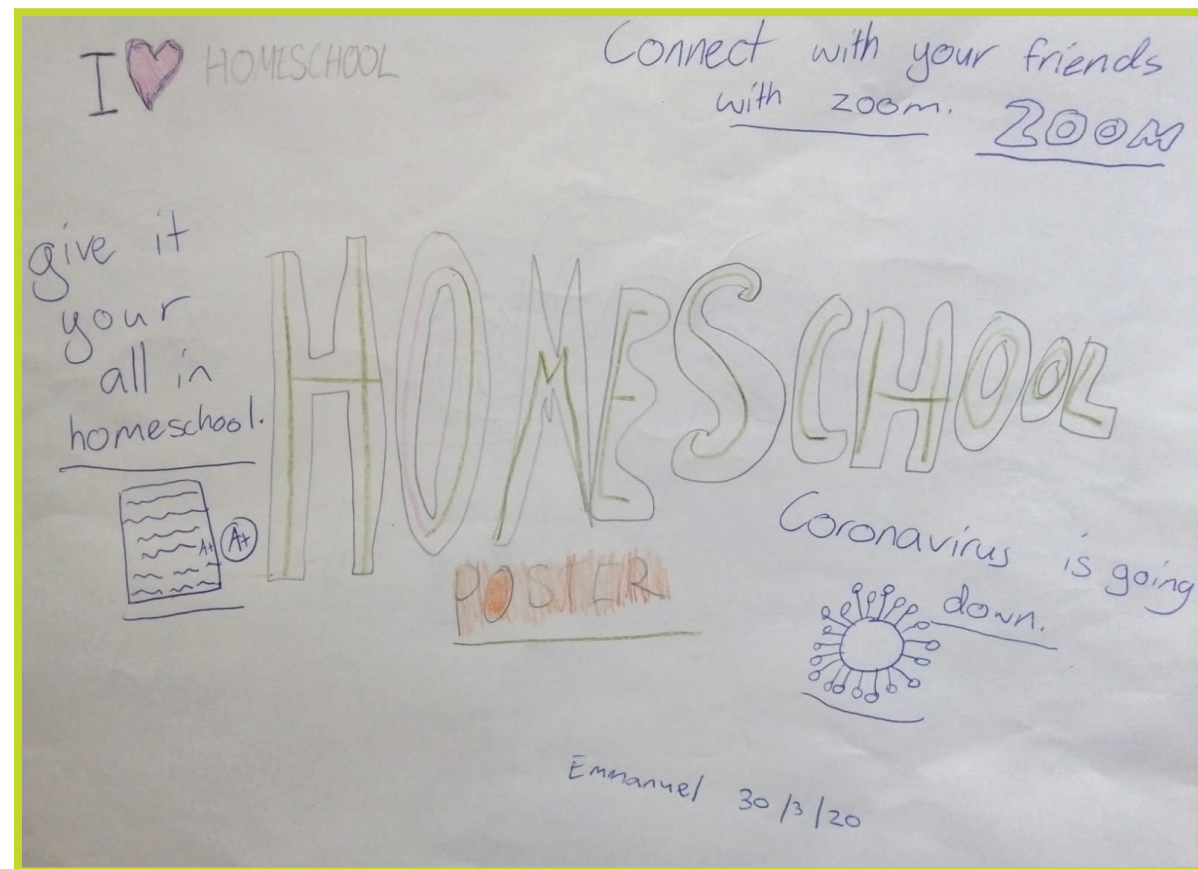 I ♥ HOMESCHOOL
Connect with your friends
with zoom. ZOOM
give it
your
all in
homeschool.
A+ A+
HOMESCHOOL
POSTER
Coronavirus is going
down.
Emmanuel 30/3/20